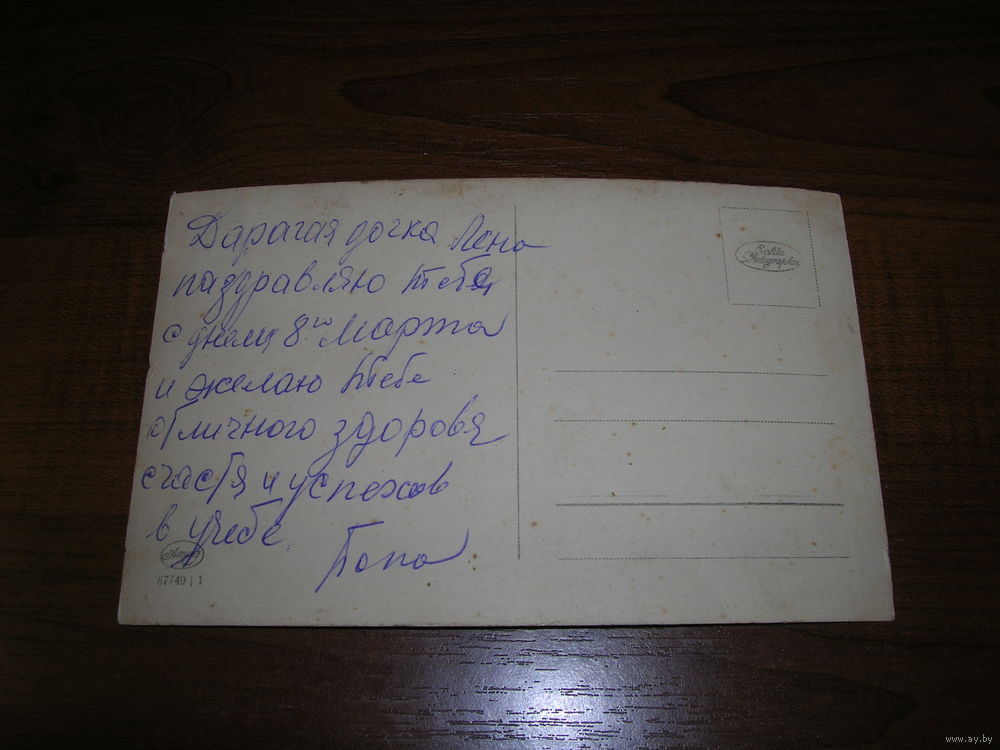 Дарагая дочка Лена
паздравляю тебя
с днем 8го Марта
и желаю тебе
отличного здоровя
счастя и успехов
в учебе.
Папа
67749 | 1
Echte
Photographie
www.ay.by